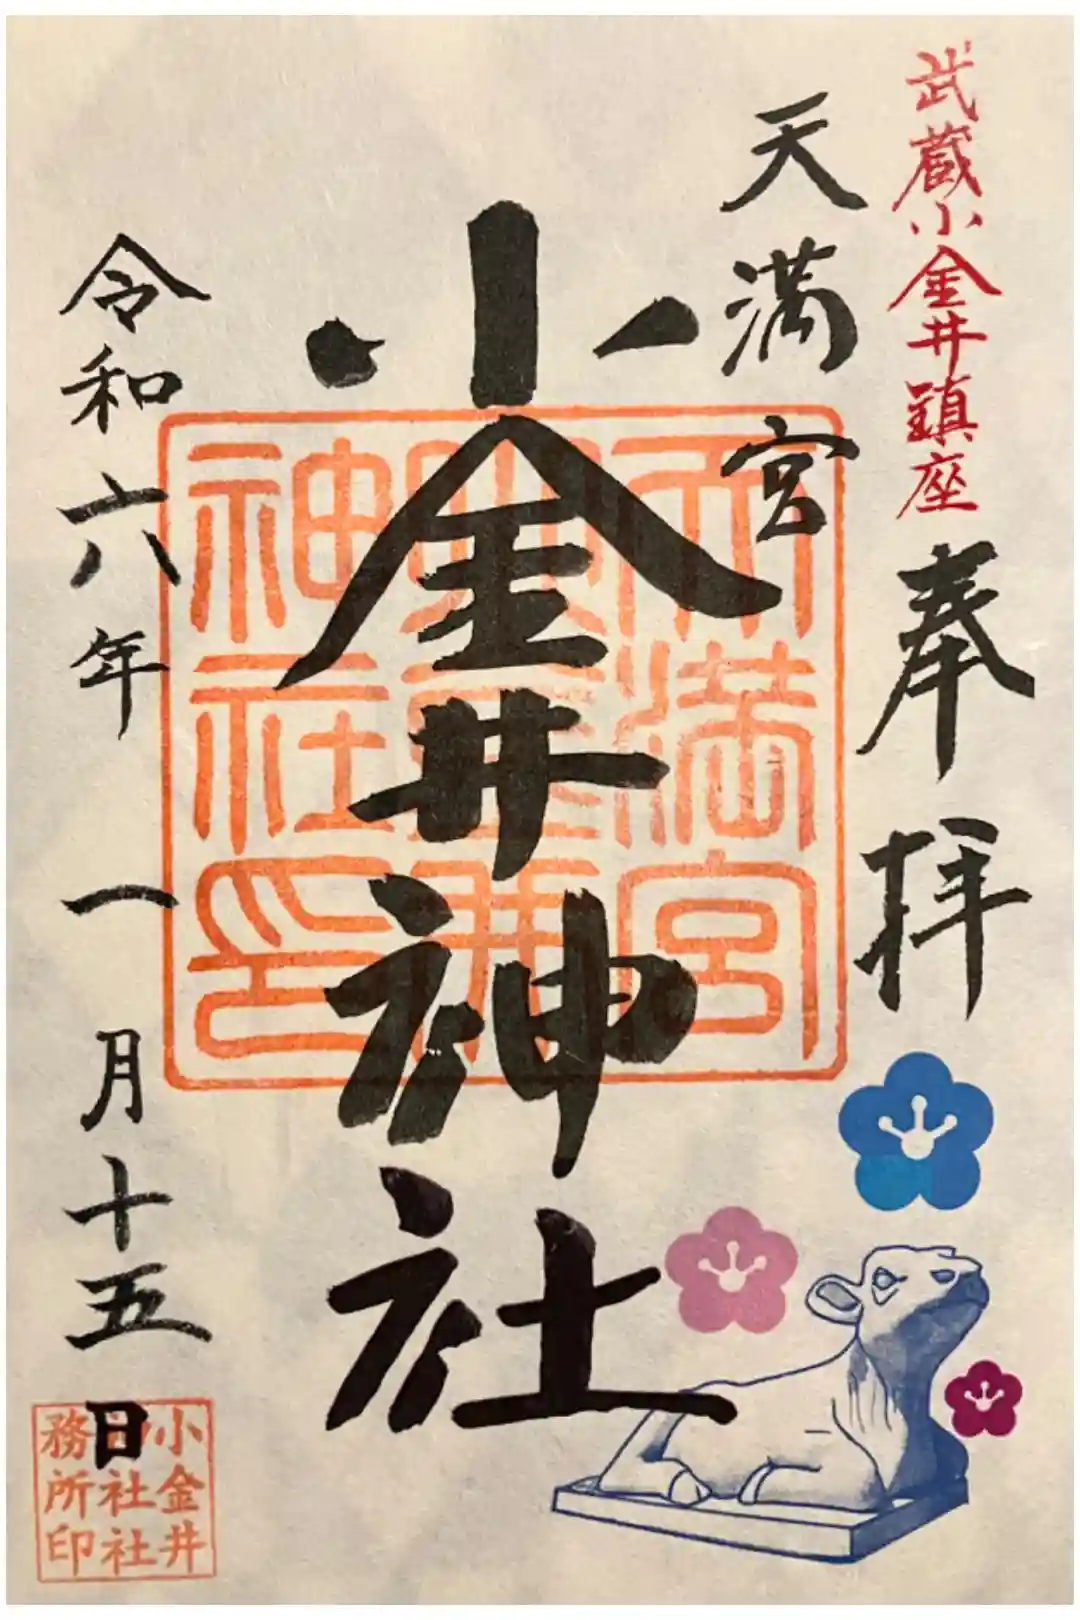 武蔵小金井鎮座
奉拝
天満宮
小金井神社
令和六年一月十五日
天満宮
神社印
小金井
神社社
務所印